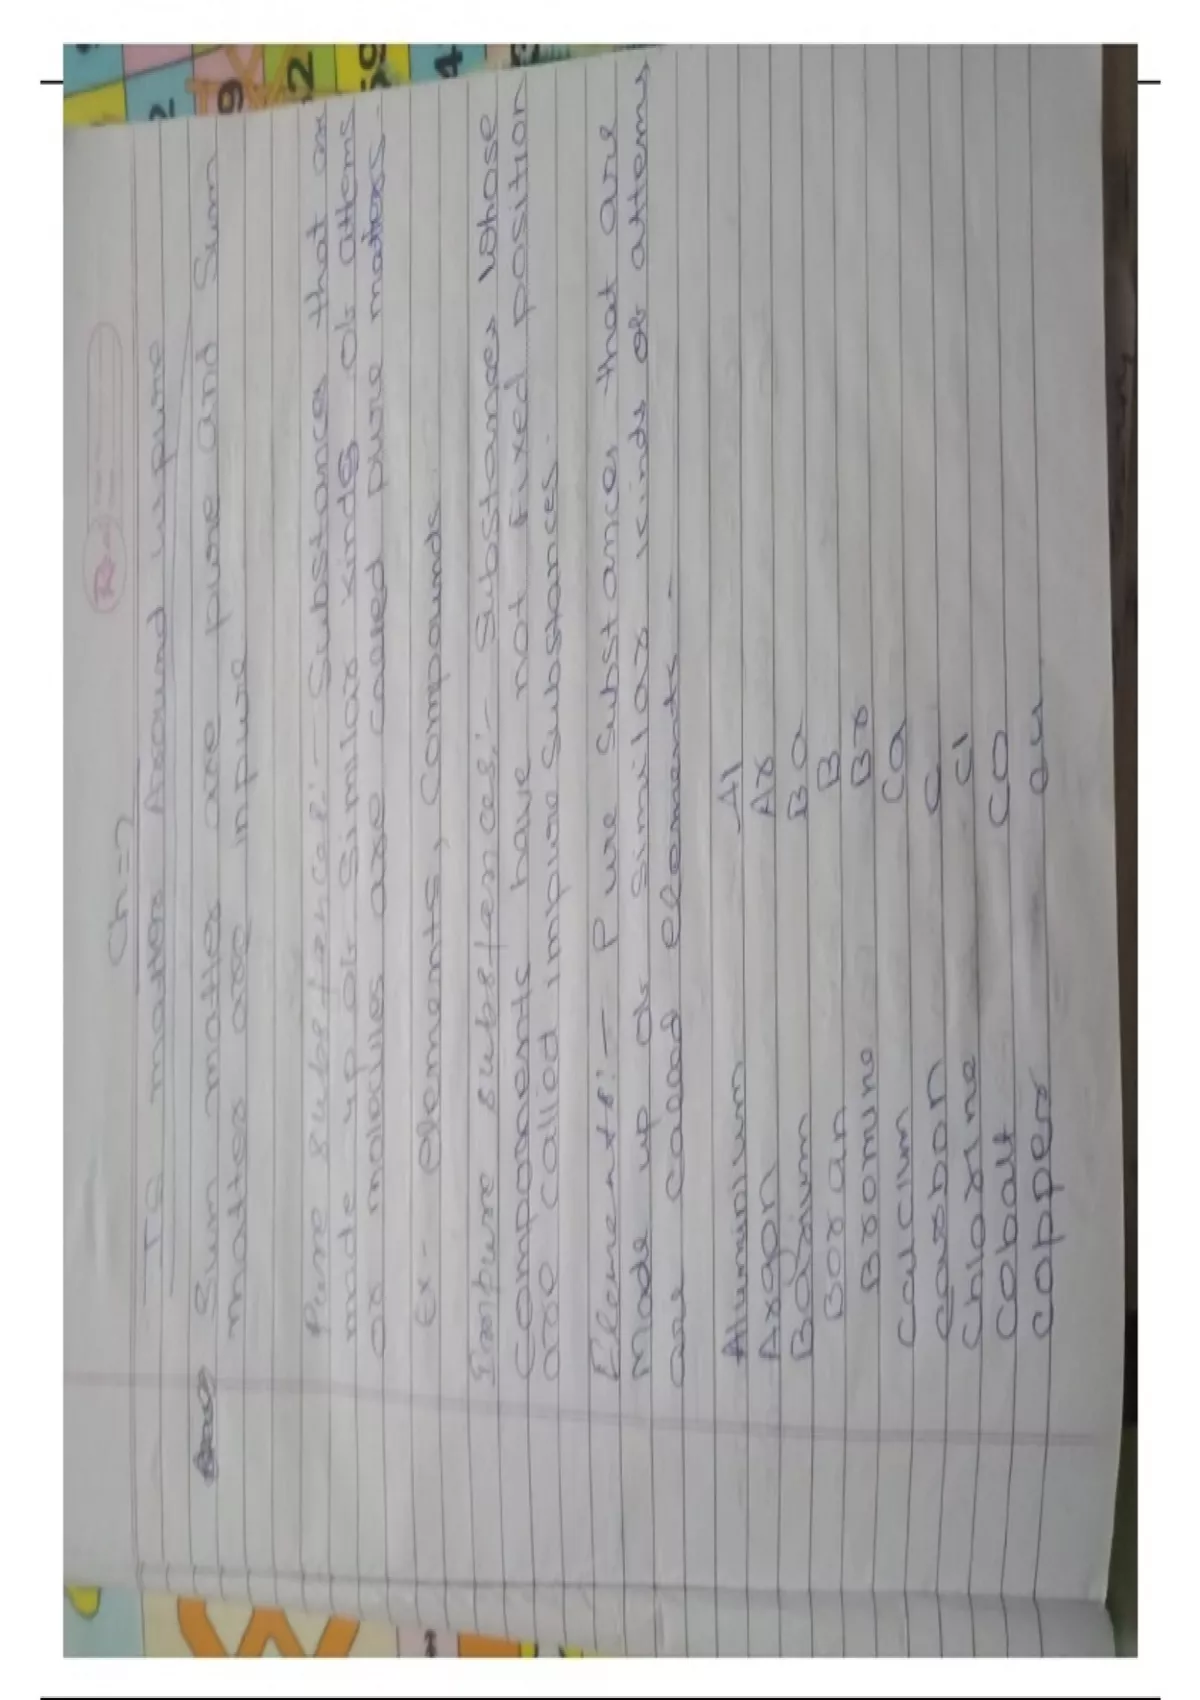 Ch = 2
Is matter Around us pure
Sum matter are pure and Sum
matter are inpure
Pure substances:- Substances that are
made up of Similar kinds of attems
or molecules are called pure matters.
Ex- elements, Compounds
Impure substances:- Substances whose
components have not fixed position
are called impure substances.
Elements:- Pure Substances that are
Made up of similar kinds of attems
are called elements.
Aluminium Al
Argon Ar
Barium Ba
Boran B
Bromine Br
Calcium Ca
Carbon C
Chlorine Cl
Cobalt CO
Copper cu
2
9
12
59
4